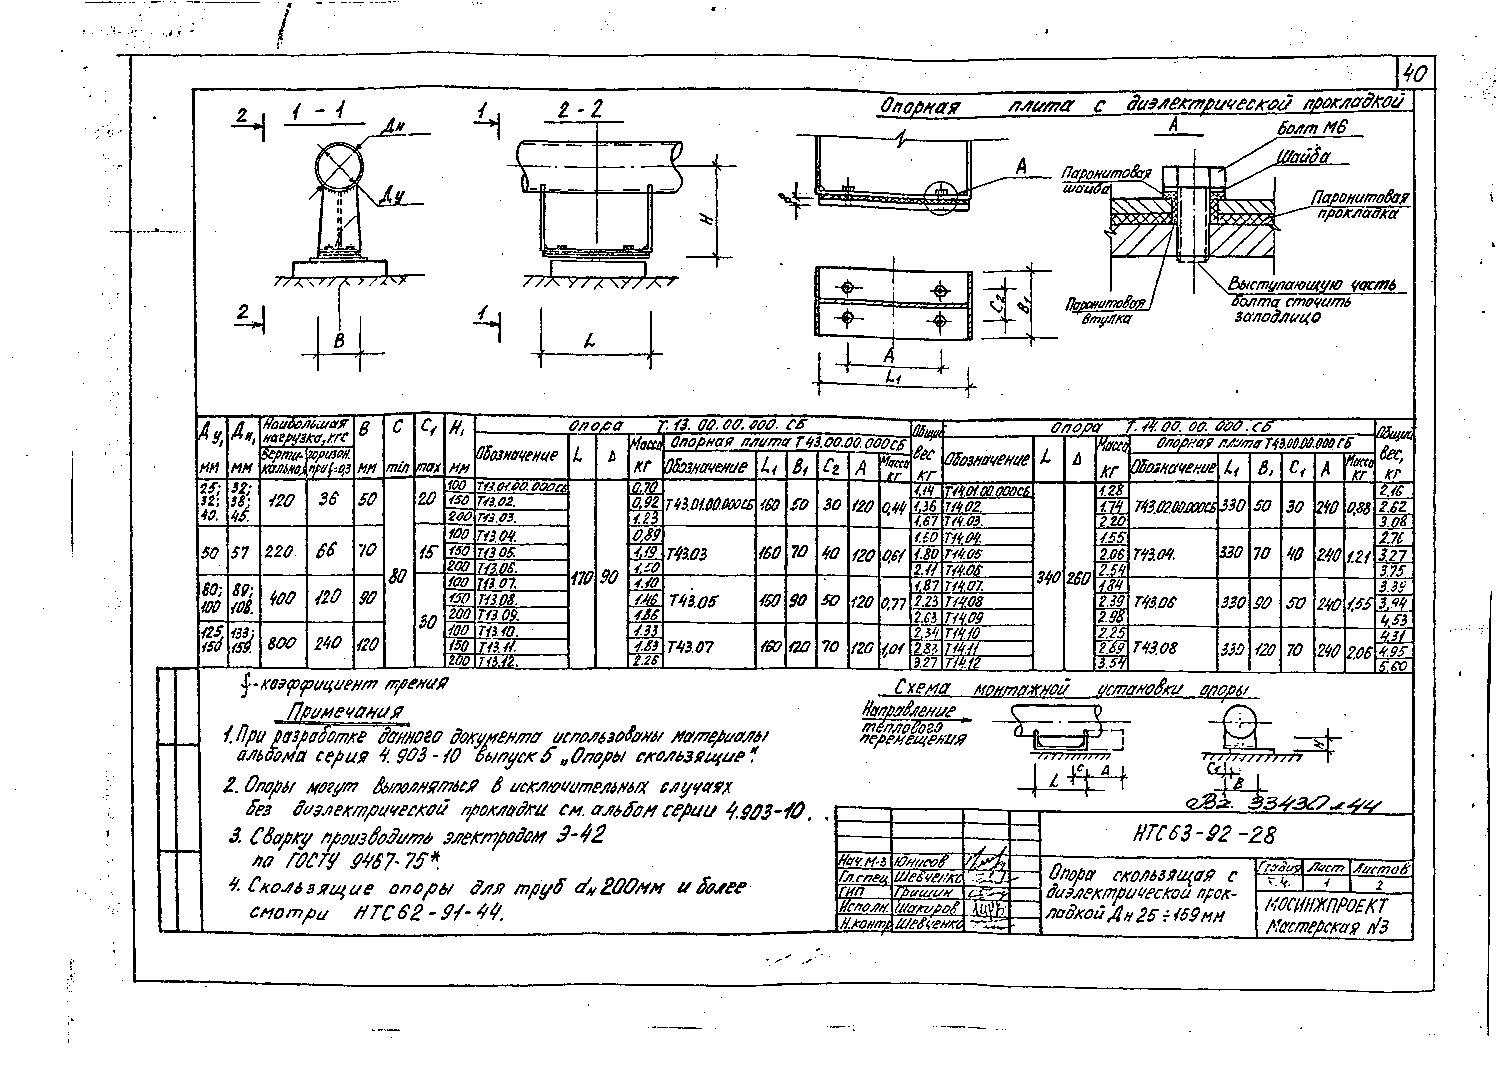 40
1 - 1
2 - 2
Опорная плита с диэлектрической прокладкой
2
2
1
1
Дн
Ду
B
H
L
A
A
L1
C2
B1
А
болт М6
Шайба
Паронитовая
шайба
Паронитовая
прокладка
Паронитовая
втулка
Выступающую часть
болта сточить
заподлицо
Ду, мм | Дн, мм | Наибольшая нагрузка, кгс | B мм | C min | C1 max | H, мм | Опора Т.13.00.00.000.СБ | Общий вес кг | Опора Т.14.00.00.000.СБ | Общий вес, кг
Вертикальная | горизон. при f=0,3 | Обозначение | L | Δ | Масса кг | Опорная плита Т43.00.00.000СБ | Обозначение | L | Δ | Масса кг | Опорная плита Т43.00.00.000СБ
Обозначение | L1 | B1 | C2 | A | Масса кг | Обозначение | L1 | B1 | C1 | A | Масса кг
25; 32; 40. | 32; 38; 45. | 120 | 36 | 50 | 80 | 20 | 100 | Т13.01.00.000СБ | 170 | 90 | 0,70 | Т43.01.00.000СБ | 160 | 50 | 30 | 120 | 0,44 | 1,14 | Т14.01.00.000СБ | 340 | 260 | 1.28 | Т43.02.00.000СБ | 330 | 50 | 30 | 240 | 0,88 | 2.16
150 | Т13.02. | 0,92 | 1,36 | Т14.02. | 1.74 | 2.62
200 | Т13.03. | 1.23 | 1,67 | Т14.03. | 2.20 | 3.08
50 | 57 | 220 | 66 | 70 | 15 | 100 | Т13.04. | 0,89 | Т43.03 | 160 | 70 | 40 | 120 | 0,61 | 1.50 | Т14.04. | 1.55 | Т43.04. | 330 | 70 | 40 | 240 | 1.21 | 2.76
150 | Т13.05. | 1,19 | 1.80 | Т14.05 | 2.06 | 3.27
200 | Т13.06. | 1.50 | 2.11 | Т14.06 | 2.54 | 3.75
80; 100 | 89; 108. | 400 | 120 | 90 | 30 | 100 | Т13.07. | 1.10 | Т43.05 | 160 | 90 | 50 | 120 | 0,77 | 1,87 | Т14.07. | 1.84 | Т43.06 | 330 | 90 | 50 | 240 | 1,55 | 3.39
150 | Т13.08. | 1.46 | 2.23 | Т14.08 | 2.39 | 3,94
200 | Т13.09. | 1.86 | 2.63 | Т14.09 | 2.98 | 4,53
125 150 | 133; 159. | 800 | 240 | 120 | 100 | Т13.10. | 1.33 | Т43.07 | 160 | 120 | 70 | 120 | 1,01 | 2,34 | Т14.10 | 2.25 | Т43.08 | 330 | 120 | 70 | 240 | 2.06 | 4.31
150 | Т13.11. | 1.83 | 2.83 | Т14.11 | 2.89 | 4.95
200 | Т13.12. | 2.26 | 3.27 | Т14.12 | 3.54 | 5.60
f-коэффициент трения
Примечания
1. При разработке данного документа использованы материалы
альбома серия 4.903-10 выпуск 5 „Опоры скользящие".
2. Опоры могут выполняться в исключительных случаях
без диэлектрической прокладки см. альбом серии 4.903-10.
3. Сварку производить электродом Э-42
по ГОСТУ 9467-75*.
4. Скользящие опоры для труб dн 200мм и более
смотри НТС62-91-44.
Схема монтажной установки опоры
Направление
теплового
перемещения
L
C
Δ
H
C1
B
33430 л 44
НТС63-92-28
Нач.М-3 Юнисов
Гл.спец Шевченко
ГИП Гришин
Исполн. Шакиров
Н.контр Шевченко
Опора скользящая с
диэлектрической прок-
ладкой Дн 25÷159мм
Стадия Лист Листов
1 2
МОСИНЖПРОЕКТ
Мастерская N3